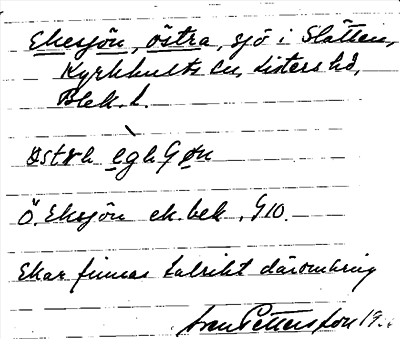 Eksjön, östra, sjö i Slätten,
Kyrkhults sn, Listers hd,
Blek. l.
Ö. Eksjön ek. bek. 910.
Ekar finnas talrikt däromkring
Sven Pettersson 19